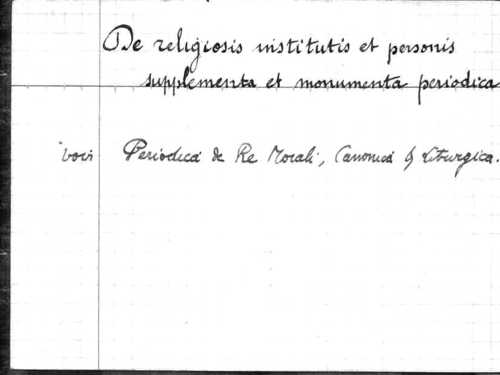 De religiosis institutis et personis
supplementa et monumenta periodica
voir Periodica de Re Morali, Canonica & Liturgica.